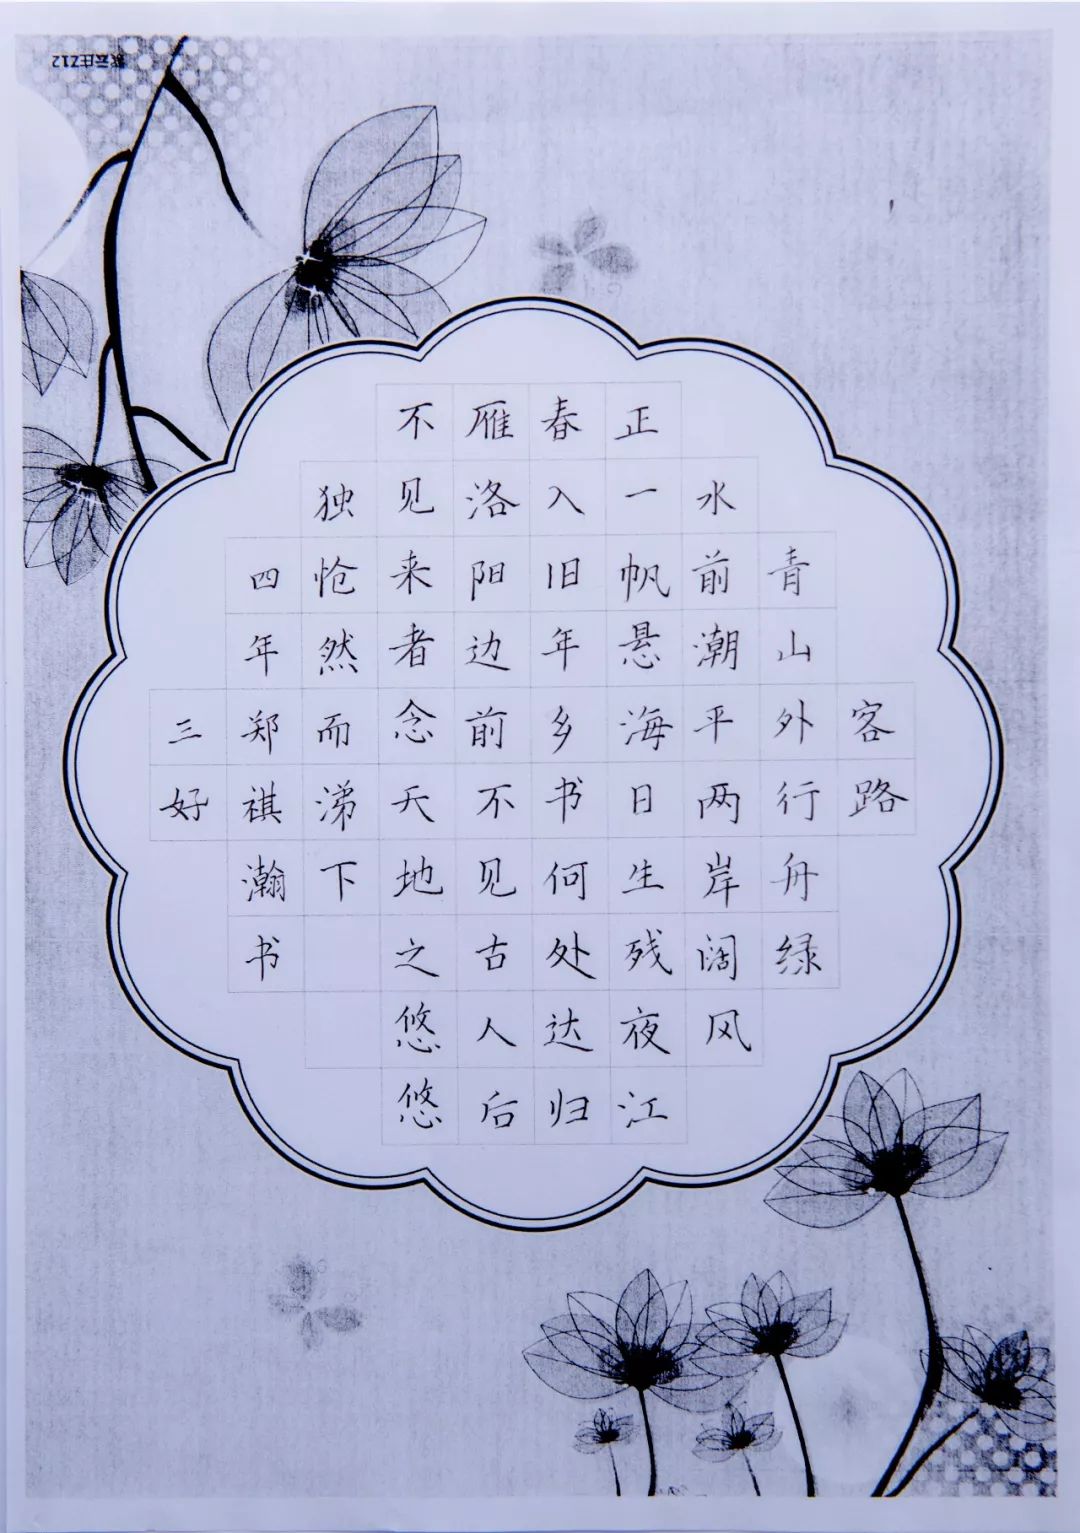 客路
青山外行舟绿
水前潮平两岸阔风
正一帆悬海日生残夜江
春入旧年乡书何处达归
雁洛阳边前不见古人后
不见来者念天地之悠悠
独怆然而涕下
四年郑祺瀚书
三好
云庄Z12